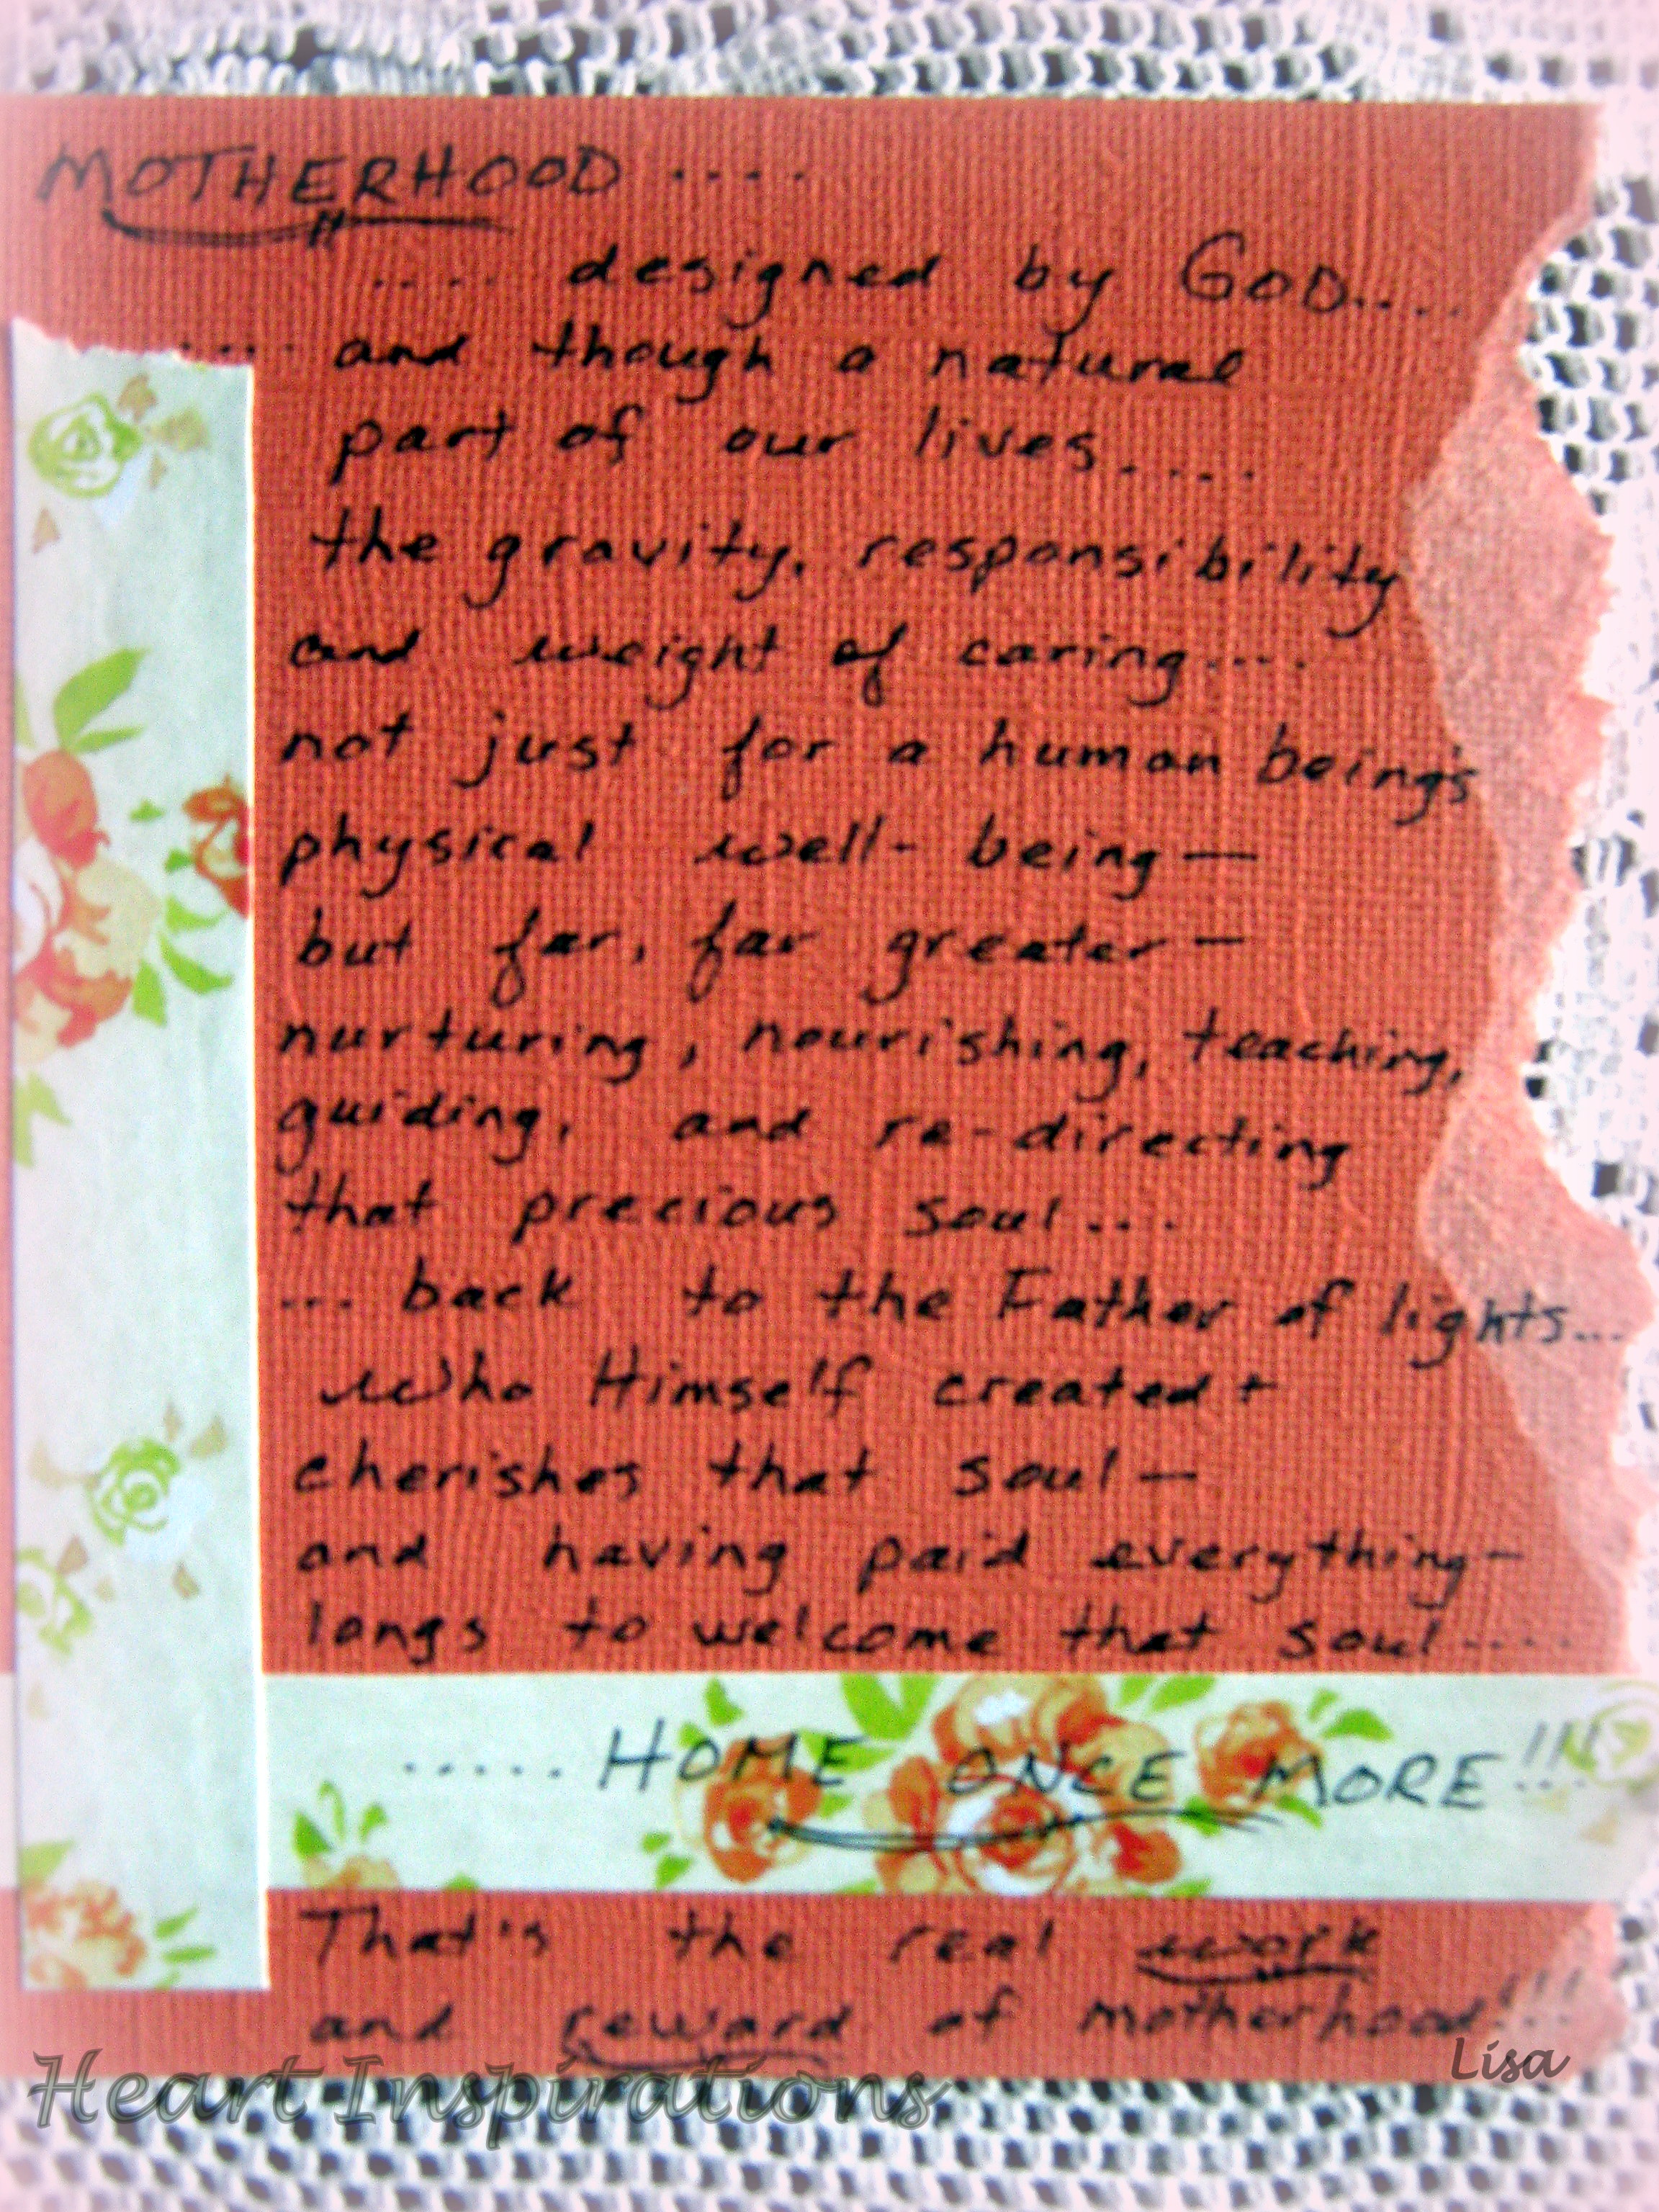 MOTHERHOOD ....
.... designed by GOD....
.... and though a natural
part of our lives.....
the gravity, responsibility
and weight of caring....
not just for a human being's
physical well-being—
but far, far greater—
nurturing, nourishing, teaching,
guiding, and re-directing
that precious soul....
... back to the Father of lights...
Who Himself created +
cherishes that soul—
and having paid everything—
longs to welcome that soul....
..... HOME ONCE MORE!!!
That's the real work
and reward of motherhood!!!
Lisa
Heart Inspirations